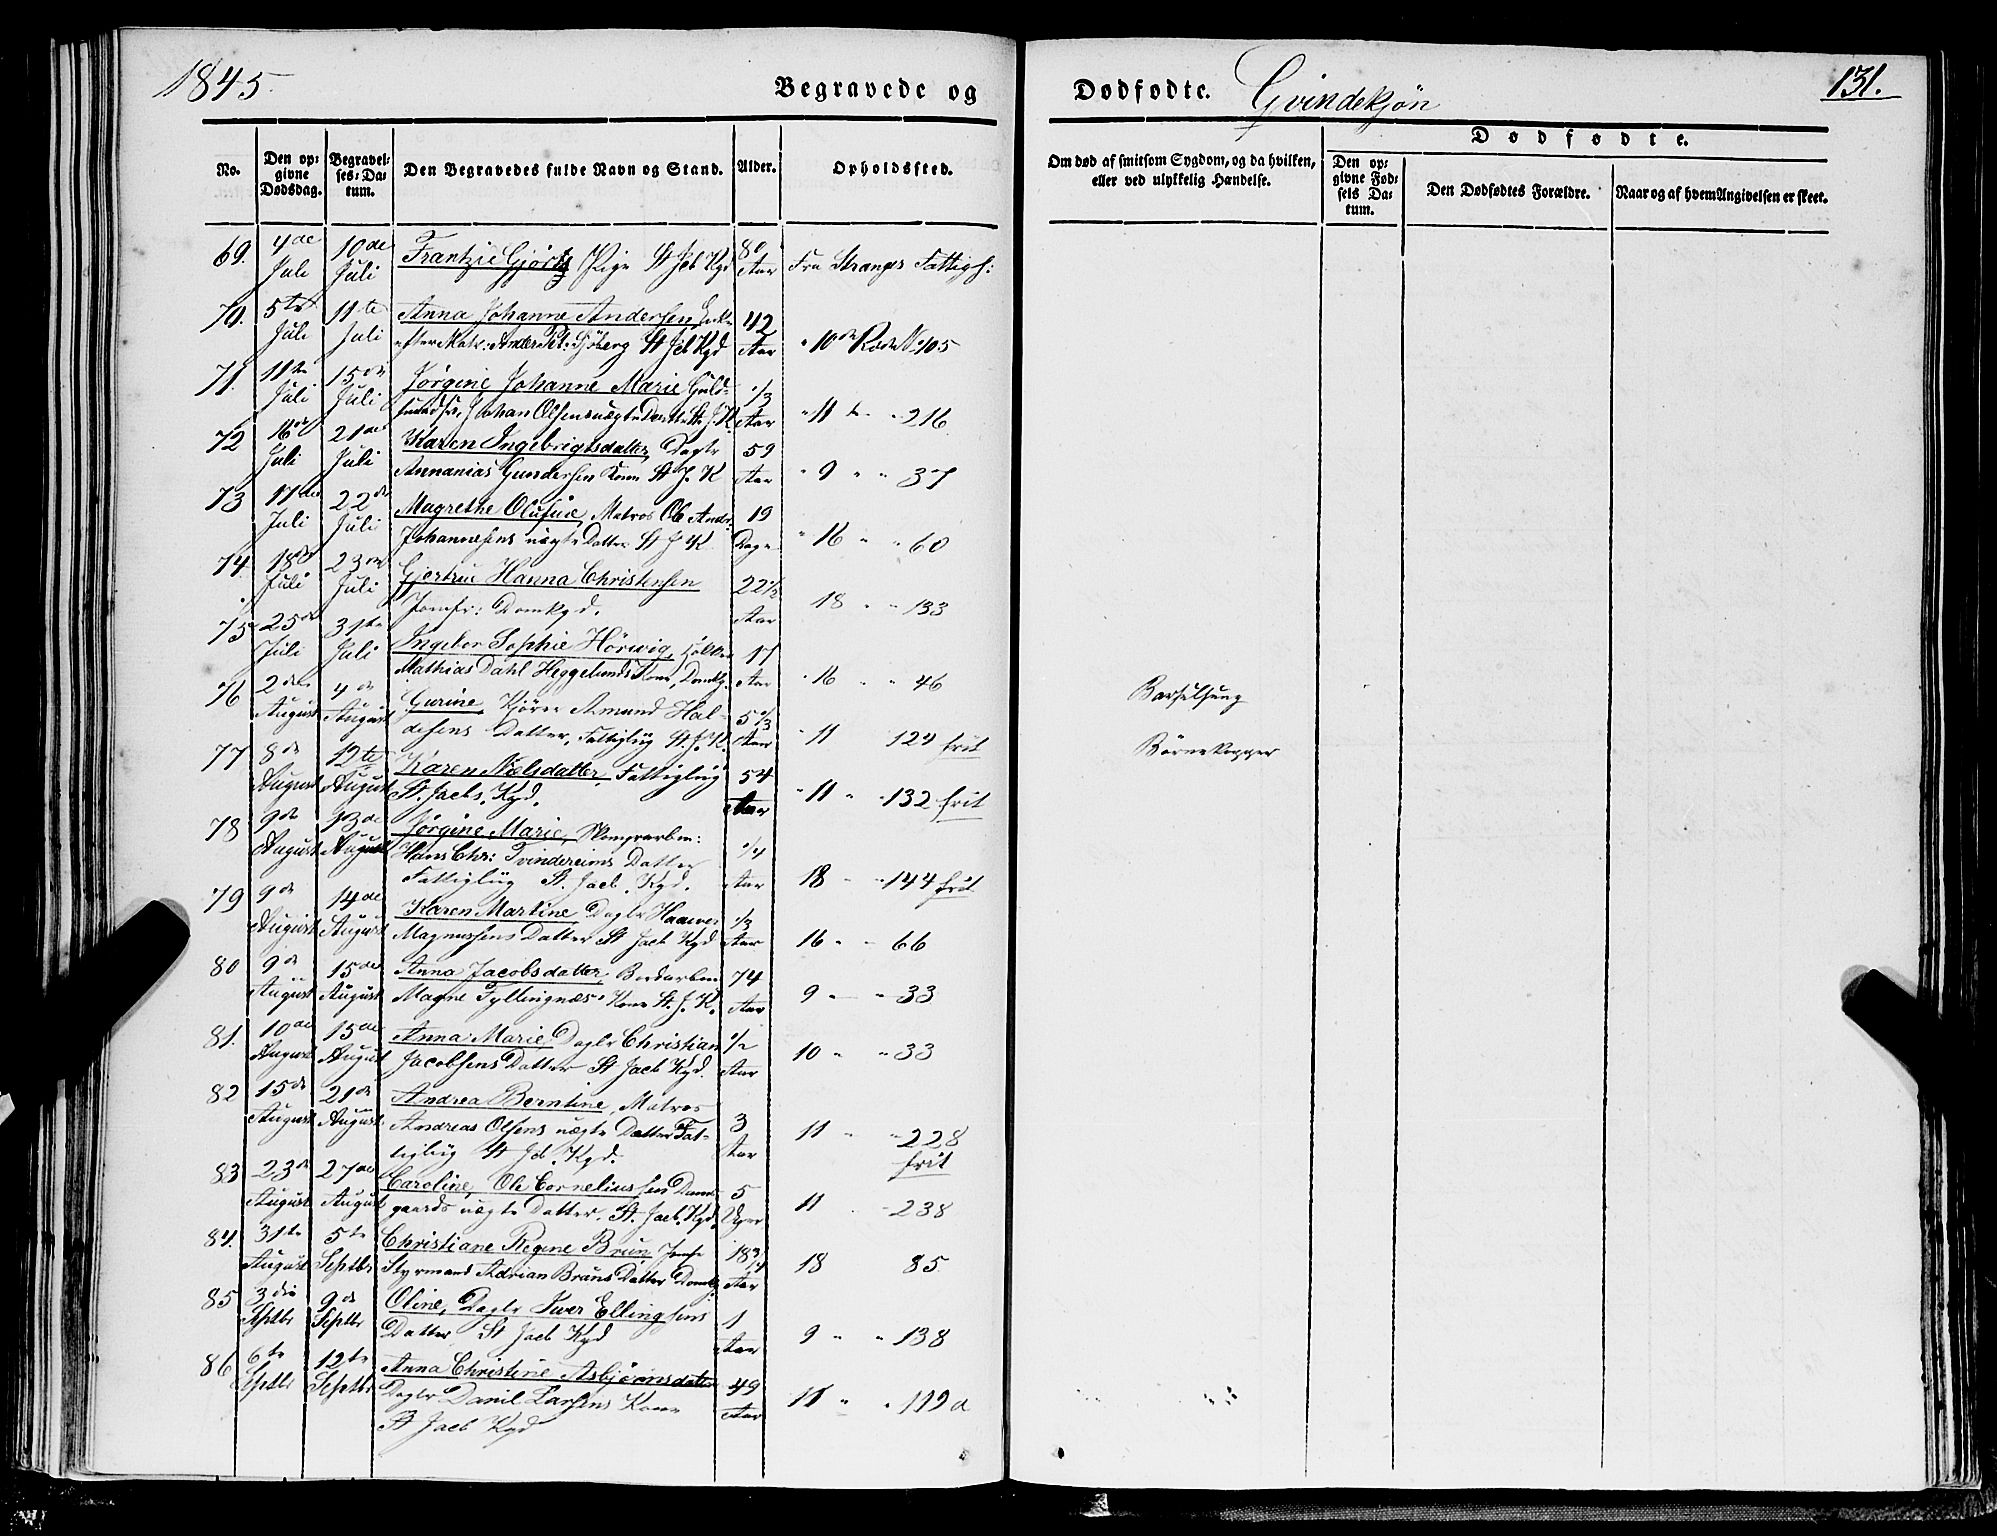 1845.
Begravede og
Dødfødte. Qvindekjøn
131.
No.
Den opgivne Dødsdag.
Begravelses-Datum.
Den Begravedes fulde Navn og Stand.
Alder.
Opholdssted.
Om død af smitsom Sygdom, og da hvilken, eller ved ulykkelig Hændelse.
Dødfødte.
Den opgivne Fødsels Datum.
Den Dødfødtes Forældre.
Naar og af hvem Angivelsen er skeet.
69. 4de Juli 10de Juli Frantzie Gjørtz Pige St Jcb Kgd 80 Aar Fra Stranges Fattigh:
70. 5te Juli 11te Juli Anna Johanne Andersen, Enke
efter Matr: Ander Pet: Sjöberg St Jcb Kgd 42 Aar " 10de Rode No 105
71. 11te Juli 15de Juli Jørgine Johanne Marie Guld-
smedsv. Johan Olsens uægte Datter St. J. K. 1/3 Aar " 11te " 216
72 16de Juli 21de Juli Karen Ingebrigtsdatter, Daglr
Annanias Gundersen Kone St J. K 59 Aar " 9 " " 37
73 17de Juli 22de Juli Magrethe Olufine, Matros Ole Andr:
Johannesens uægte Datter St J K. 19 Dage " 16 " " 60
74. 18de Juli 23de Juli Gjertrue Hanna Christensen
Jomfr: Domkgd. 22 1/2 Aar 18 " " 133
75 25de Juli 31te Juli Ingebor Sophie Hörwig,
Mathias Dahl Heggelunds Kone, Domkg. 17 Aar " 16 " " 46 Barselseng
76 2den August 4de August Gurine, Kjörer Amund Hal-
desens Datter, Fattiglig St. J. K. 5 1/3 Aar " 11 124 frit Börnekopper
77 8de August 12te August Karen Nielsdatter, Fattiglig
St. Jacb. Kgd. 54 Aar " 11 " " 132 frit
78 9de August 13de August Jörgine Marie,
Hans Chr: Tvindereims Datter
Fattiglig St. Jacb. Kgd. 1/4 Aar 18 " " 144 frit
79 9de August 14de August Karen Martine, Daglr Haaver
Magnussens Datter St Jacb Kgd 1/3 Aar 16 " " 66
80 9de August 15de August Anna Jacobsdatter,
Magne Fyllingnæs' Kone St. J. K. 74 Aar 9 " " 33
81. 10de August 15de August Anna Marie, Daglr Christian
Jacobsens Datter St Jacb Kgd. 1/2 Aar 10 " " 33
82 15de August 21de August Andrea Berntine, Matros
Andreas Olsens uægte Datter Fat-
tiglig St Jcb. Kgd. 3 Aar 11 " " 228 frit
83 23de August 27de August Caroline, Ole Corneliussen Dam-
gaards uægte Datter. St. Jacb. Kgd. 5 Uger 11 " 238
84. 31te August 5te Septbr Christiane Regine Brun Jomfr
Styrmand Adrian Bruns Datter Domkg. 18 3/4 Aar 18 85
85 3die Septbr 9de Septbr Oline, Daglr Iver Ellingsens
Datter St Jacb Kgd 1 Aar 9 " " 138
86 6te Septbr 12te Septbr Anna Christine Asbjörnsdatter
Daglr Danil Larsens Kone
St Jacb Kgd 49 Aar 11 " " 119a